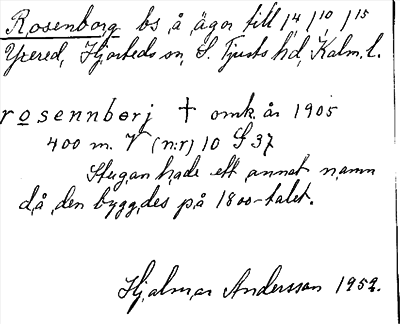 Rosenborg bs å ägor till 1/4 1/10 1/15
Yxered, Hjorteds sn, S. Tjusts hd, Kalm. l.
rosennborj † omk. år 1905
400 m. V (n:r) 10 S 37
Stugan hade ett annat namn
då den byggdes på 1800-talet.
Hjalmar Andersson 1952.